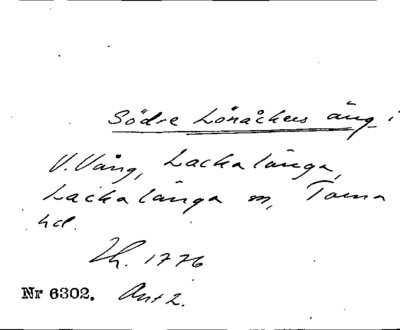 Södre Lönåkers äng i
V. Vång, Lackalänga,
Lackalänga sn, Torna
hd.
Lh. 1776
Nr 6302. Akt 2.